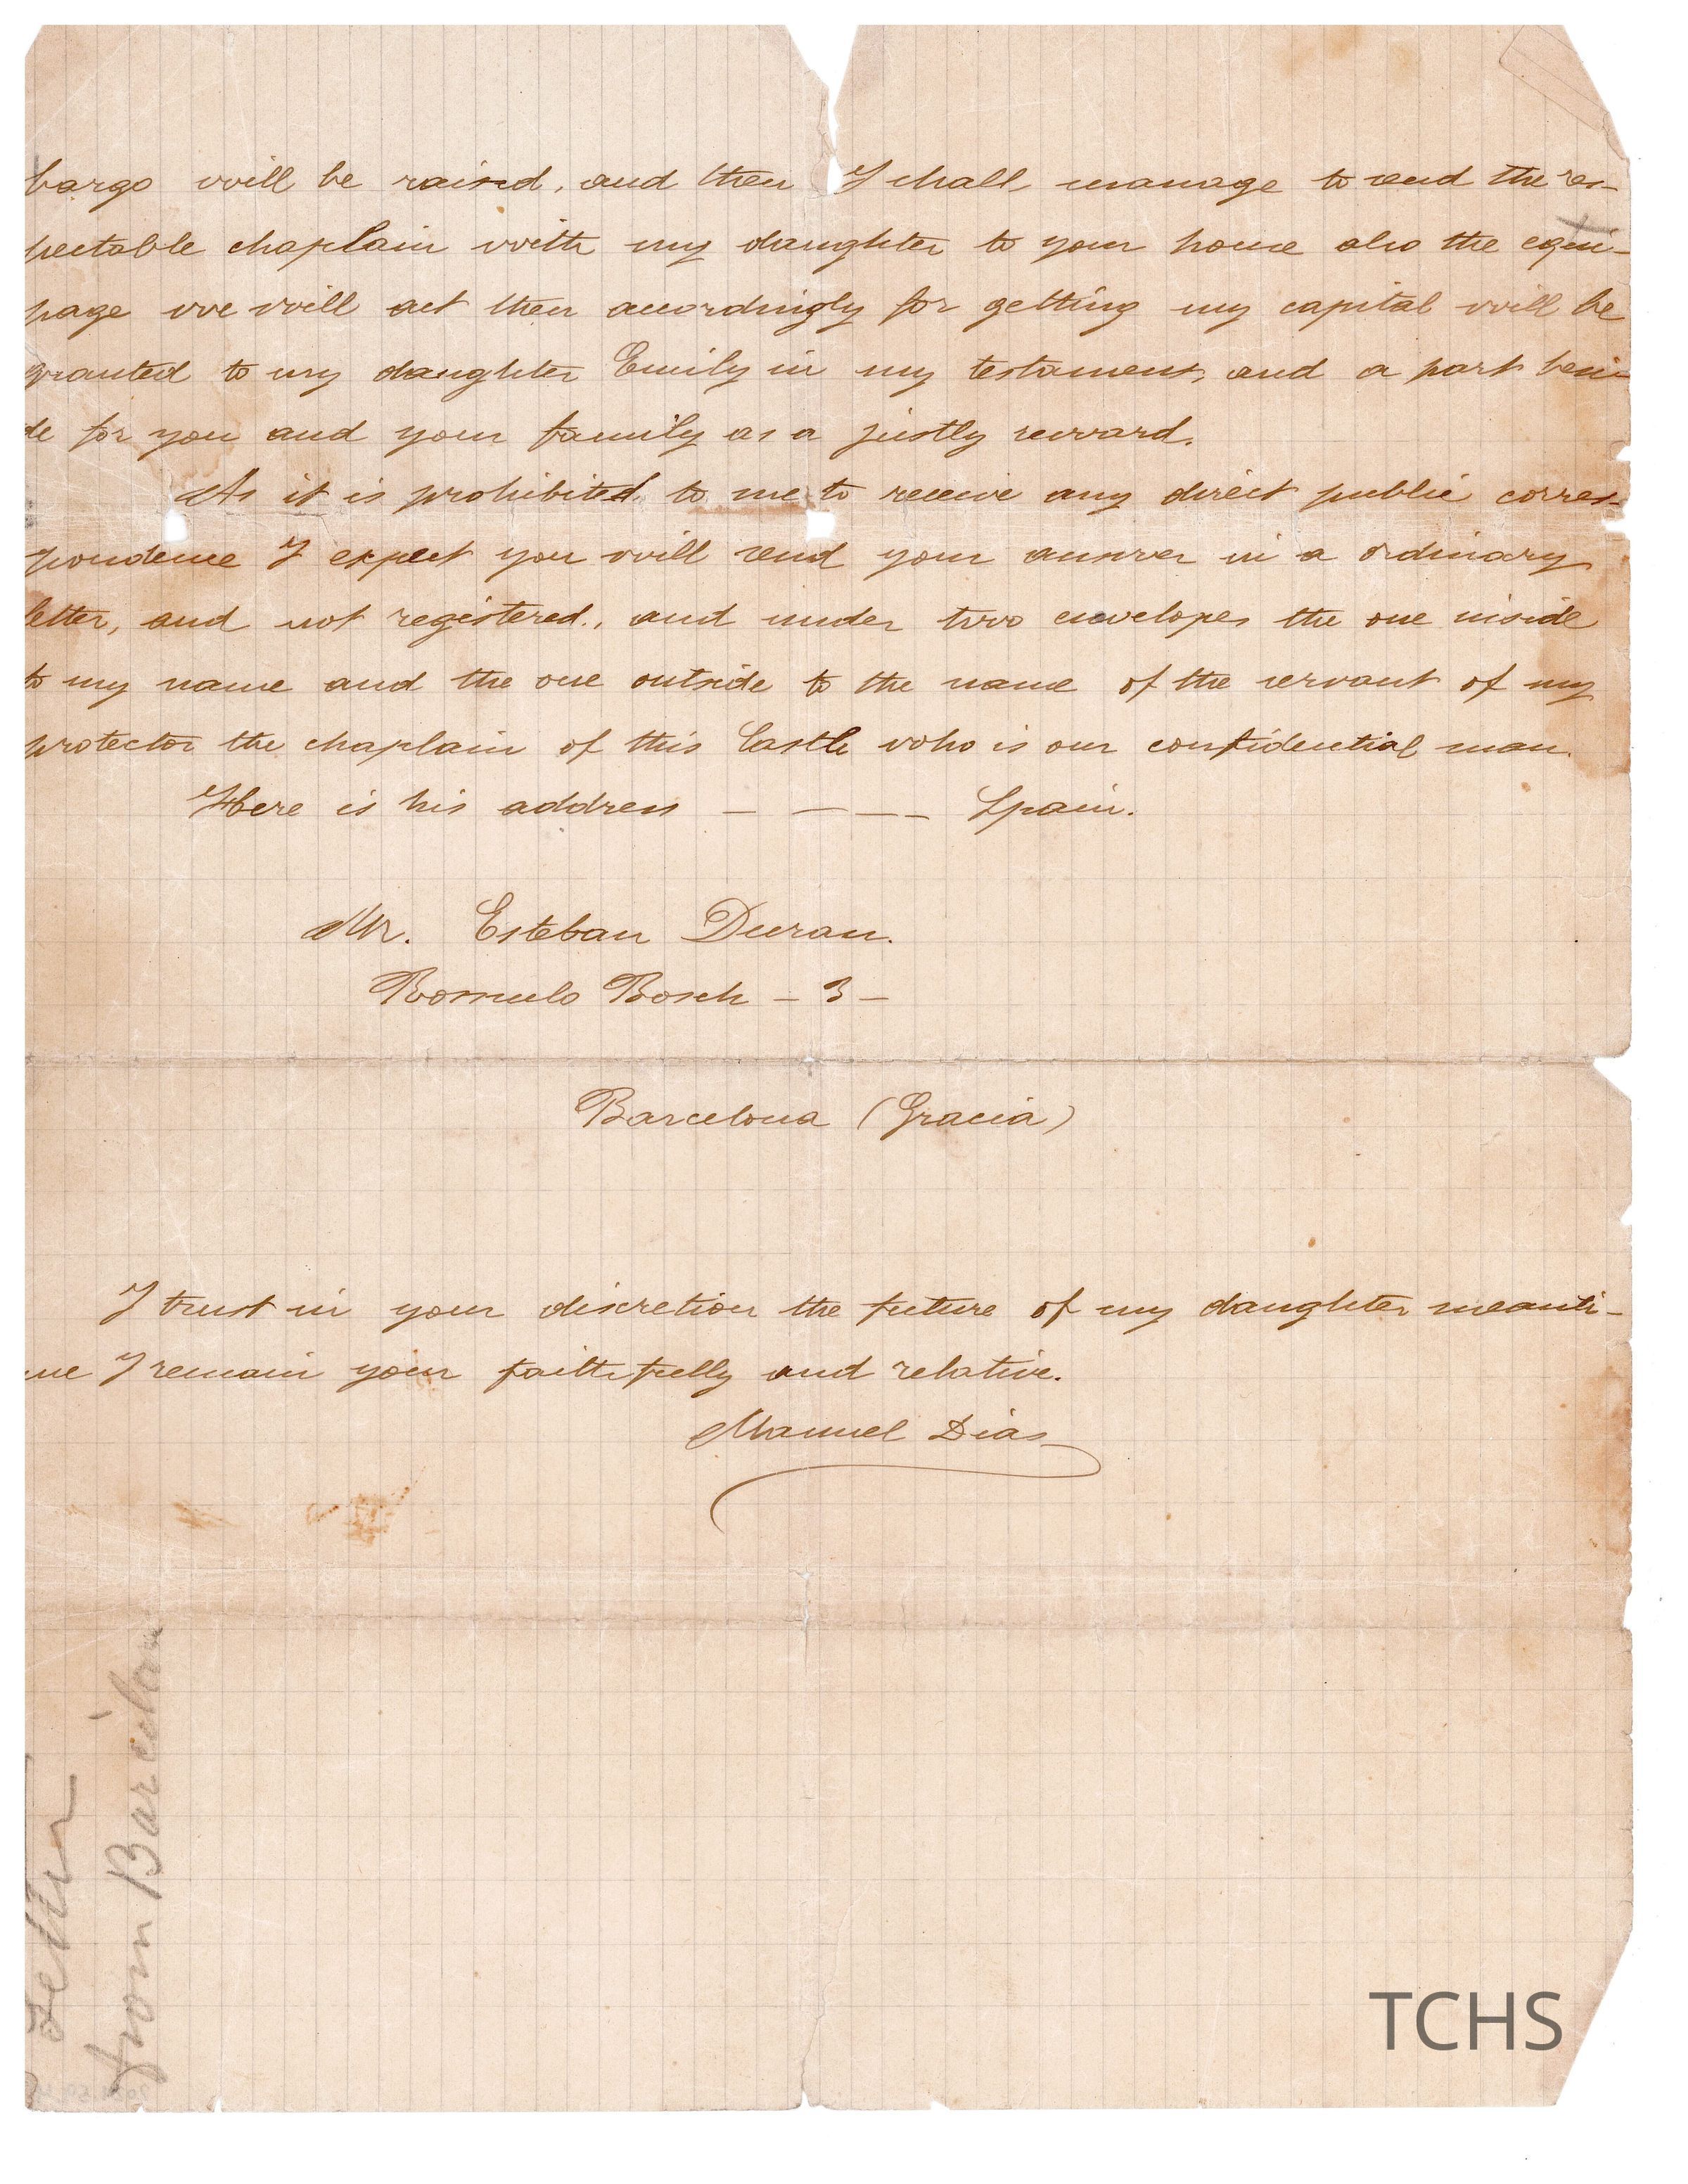 bargo will be raised, and then I shall manage to send the res-
pectable chaplain with my daughter to your house also the equi-
page we will act then accordingly for getting my capital will be
granted to my daughter Emily in my testament, and a part besi-
de for you and your family as a justly reward.
As it is prohibited to me to receive any direct public corres-
pondence I expect you will send your answer in a ordinary
letter, and not registered., and under two envelopes the one inside
to my name and the one outside to the name of the servant of my
protector the chaplain of this Castle who is our confidential man.
Here is his address — — — — Spain.
Mr. Esteban Duran.
Romulo Bosch – 3 –
Barcelona (Gracia)
I trust in your discretion the future of my daughter meanti-
me I remain your faithfully and relative.
Manuel Dias
Letter
from Barcelona
TCHS